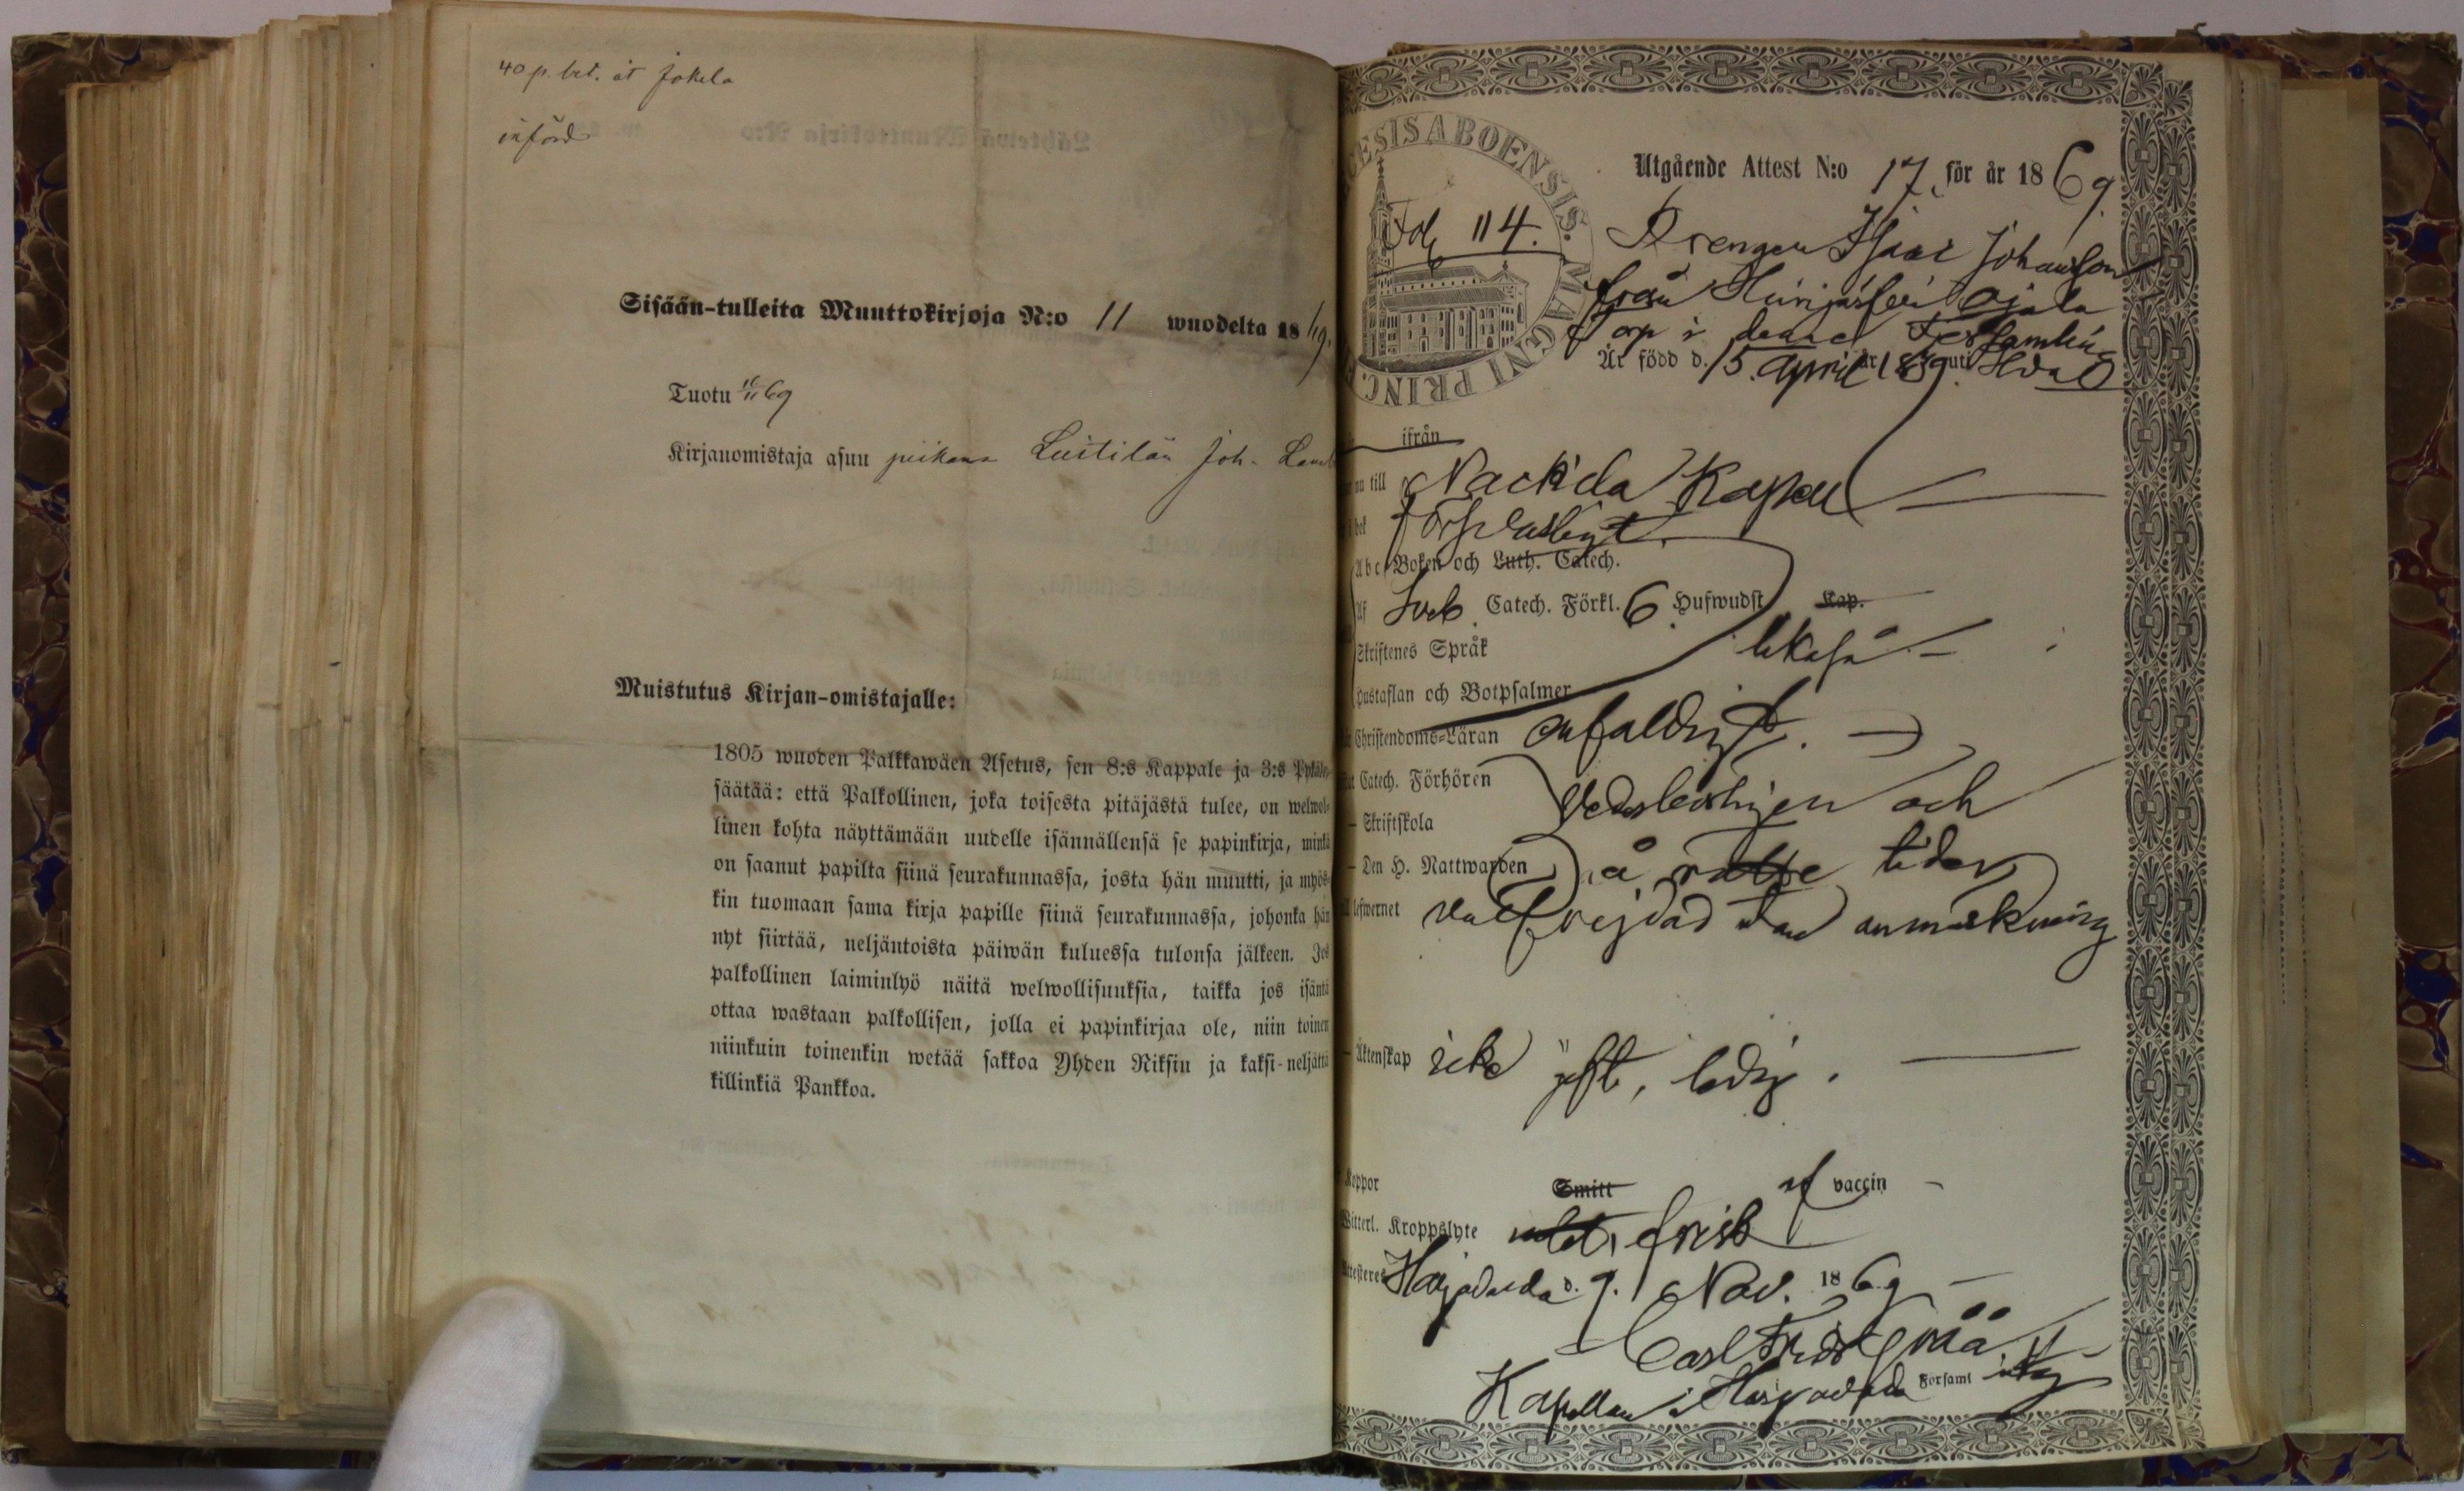 40 p. bet. åt Jokela
införd
Sisään-tulleita Muuttokirjoja N:o 11 wuodelta 1869.
Tuotu 11/11 69
Kirjanomistaja asuu piikana Joh.
Muistutus Kirjan-omistajalle:
1805 wuoden Palkkawäen Asetus, sen 8:s Kappale ja 3:s
säätää: että Palkollinen, joka toisesta pitäjästä tulee, on welwol-
linen kohta näyttämään uudelle isännällensä se papinkirja, minkä
on saanut papilta siinä seurakunnassa, josta hän muutti, ja myös-
kin tuomaan sama kirja papille siinä seurakunnassa, johonka hän
nyt siirtää, neljäntoista päiwän kuluessa tulonsa jälkeen. Jos
palkollinen laiminlyö näitä welwollisuuksia, taikka jos isäntä
ottaa wastaan palkollisen, jolla ei papinkirjaa ole, niin toinen
niinkuin toinenkin wetää sakkoa Yhden Riksin ja kaksi-neljättä
killinkiä Pankkoa.
CESIS ABOENSIS. MAGNI PRINC.
Fol. 114.
Utgående Attest N:o 17. för år 1869.
Drengen Isaac Johansson
från Ojala
Torp i denne Församling
Är född d. 15. April
ifrån
till Nackila Kapell
försvarligt.
Abc-Boken och Luth. Catech.
Af Sveb. Catech. Förkl. 6 Hufwudst. Kap.
Skriftenes Språk likaså
Hustaflan och Botpsalmer
Christendoms-Läran enfaldigt.
Catech. Förhören vederbörligen och
Skriftskola
Den H. Nattwarden å rätte tider
lefwernet välfrejdad utan anmärkning
Äktenskap icke gift, ledig.
Koppor Smitt af vaccin
Witterl. Kroppslyte frisk
Attesteres Harjavalda d. 9. Nov. 1869
Carl Fredr
Kapellan i Harjavalda Församl